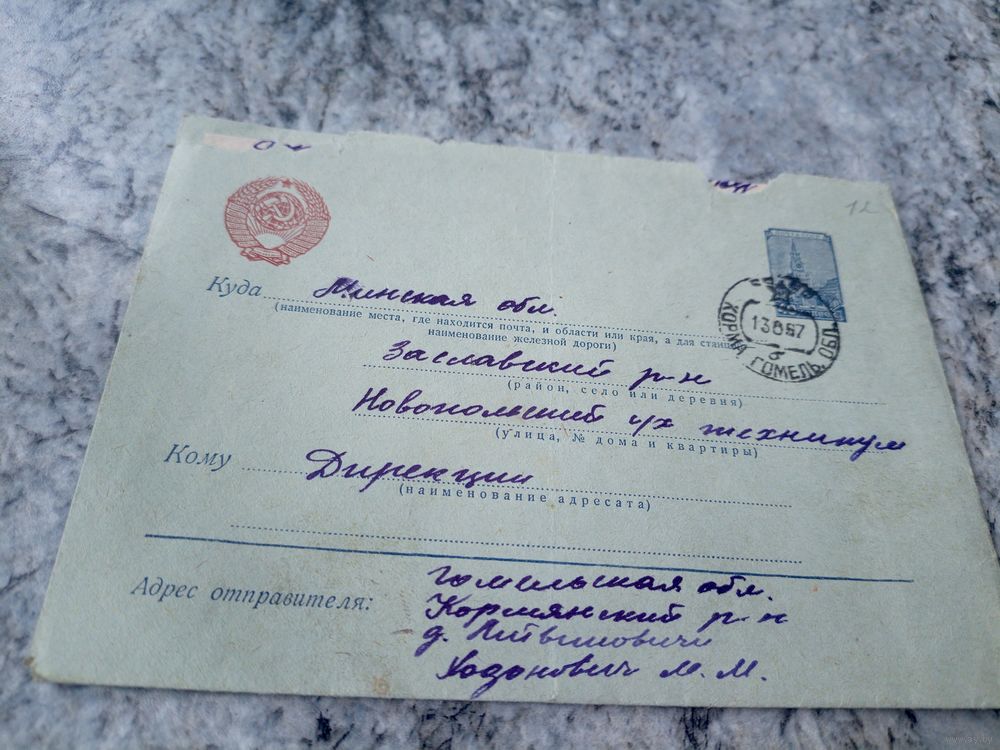 12
Куда Минская обл.
(наименование места, где находится почта, и области или края, а для станций
наименование железной дороги)
Заславский р-н
(район, село или деревня)
Новопольский с/х техникум
(улица, № дома и квартиры)
Кому Дирекции
(наименование адресата)
КОРМА ГОМЕЛЬ. ОБЛ.
Адрес отправителя: Гомельская обл.
Кормянский р-н
д. Литвиновичи
Ходонович М. М.
www.ay.by